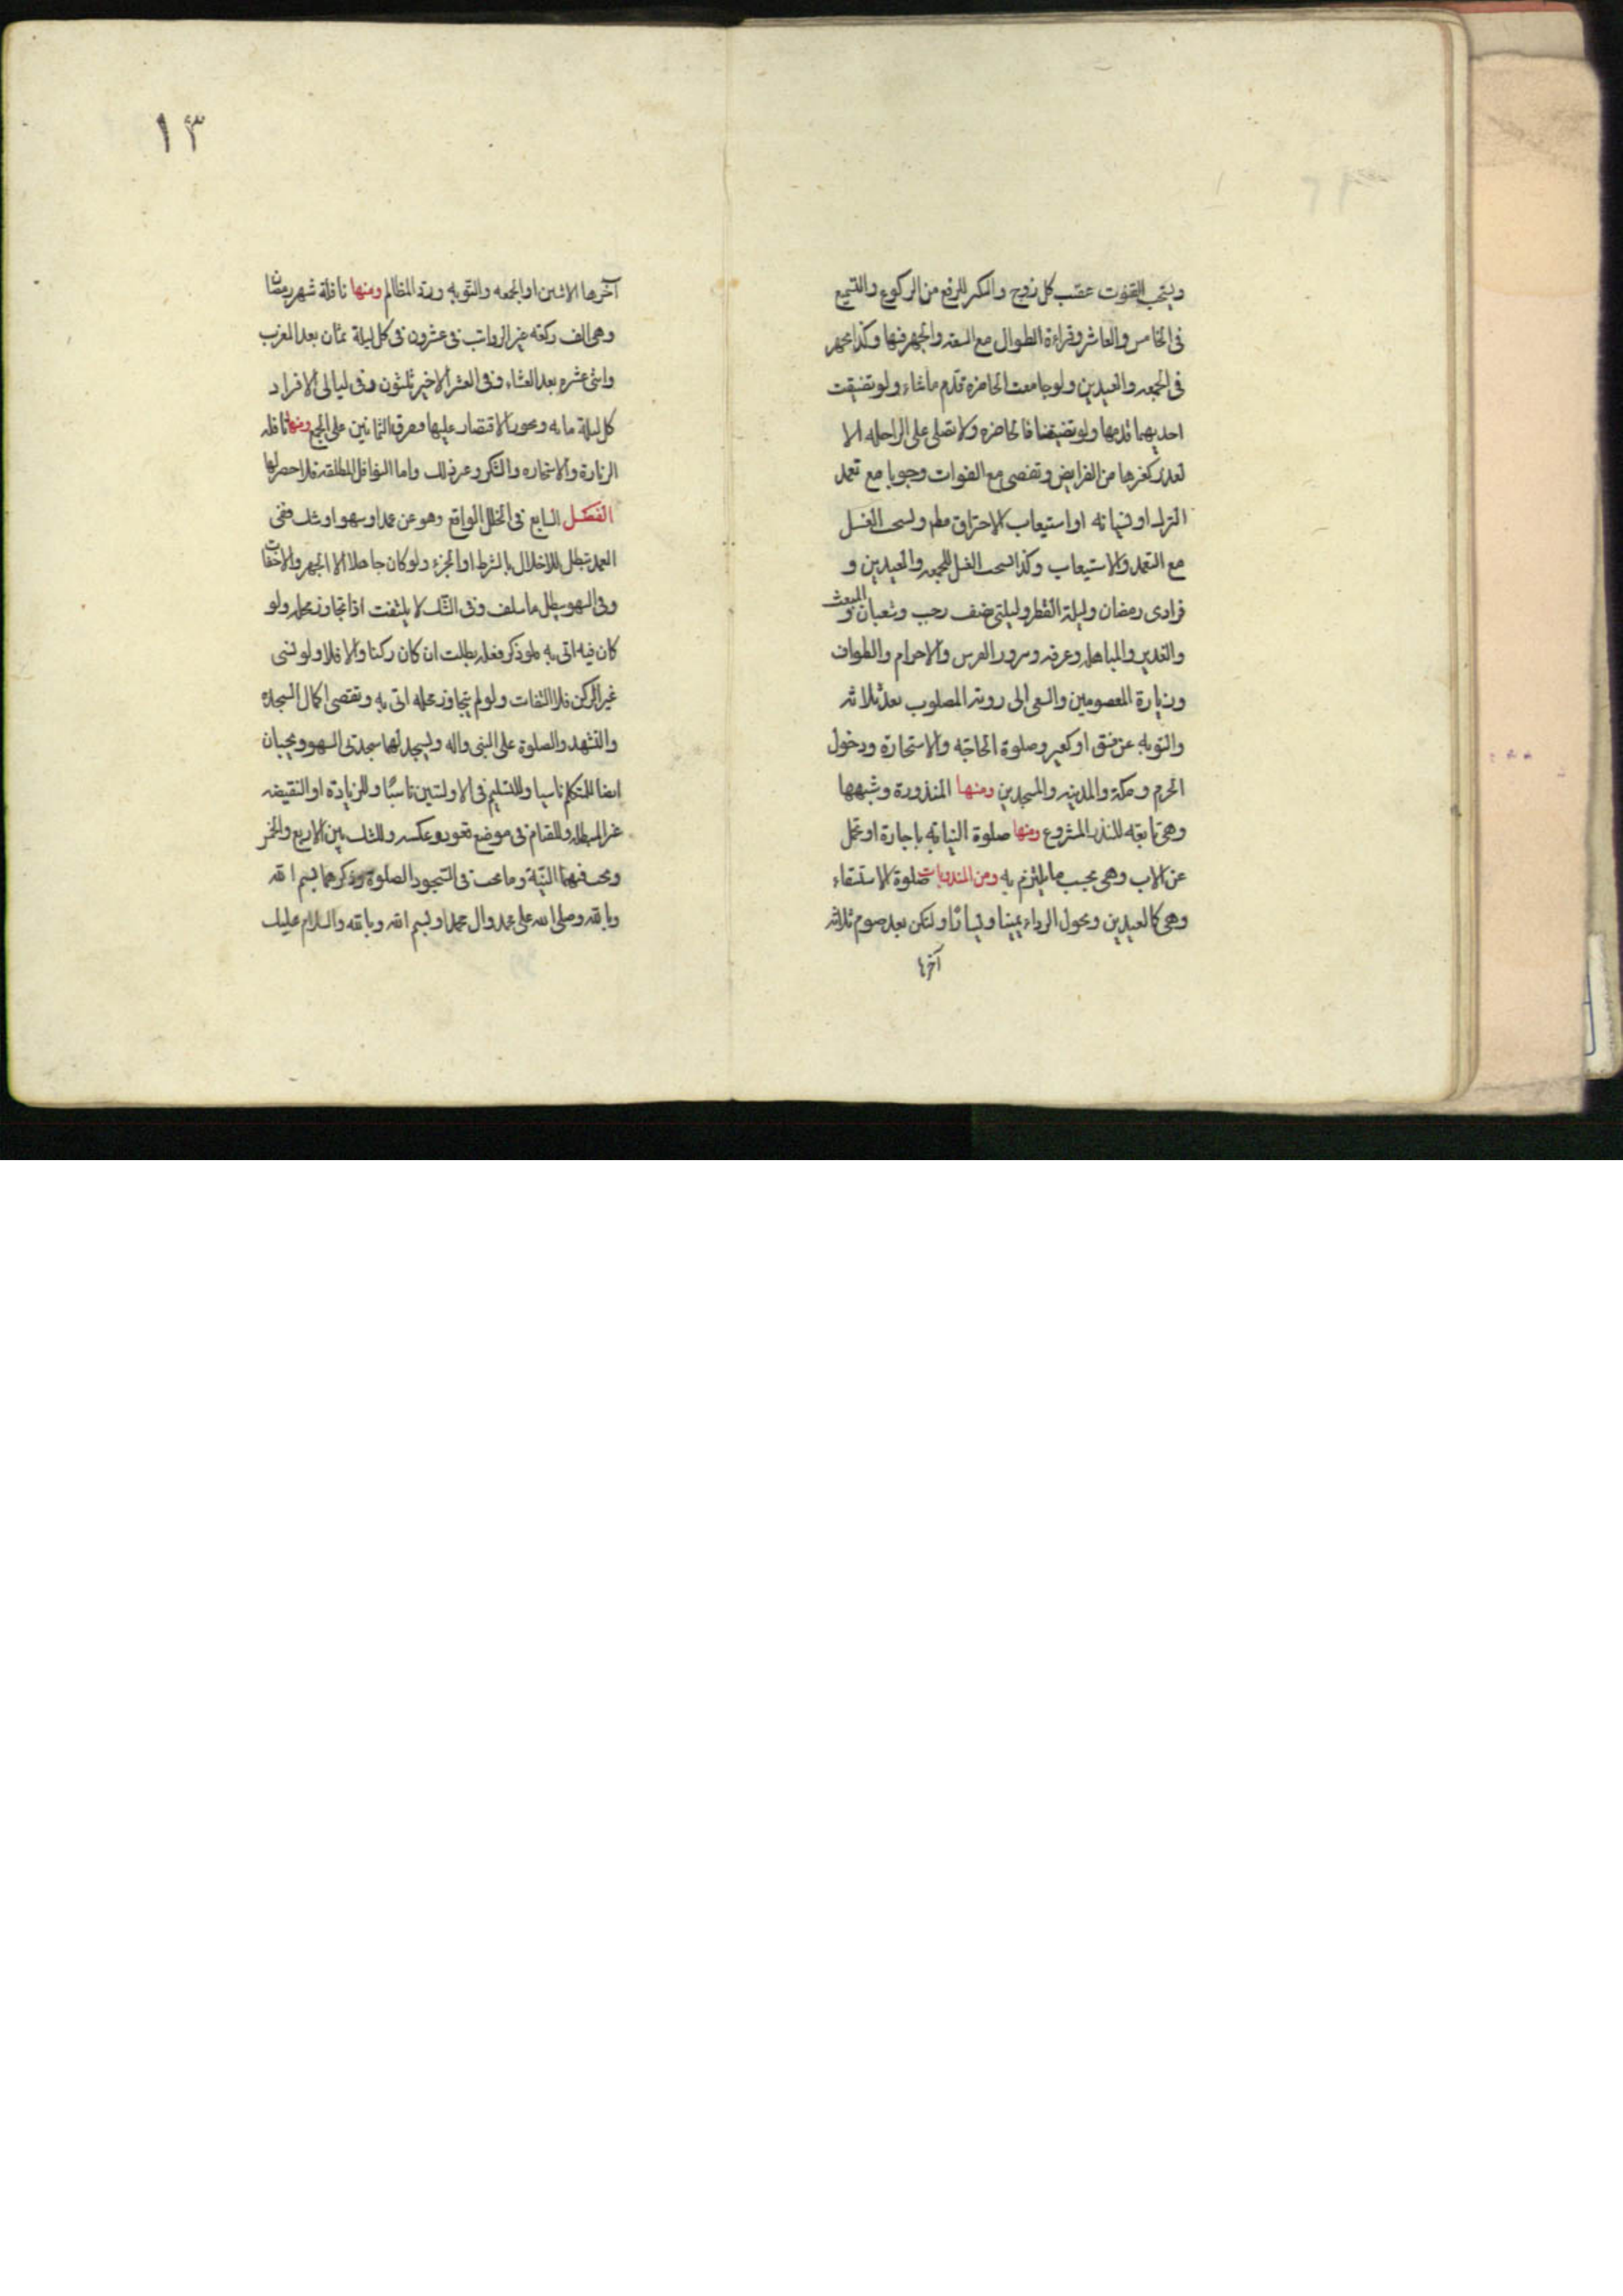 ويستحب القنوت عقيب كل زوج والتكبير للرفع من الركوع والتسميع
فى الخامس والعاشر وقراءة الطوال مع السعة والجهر فيها وكذا يجهر
فى الجمعه والعيدين ولو جامعت الحاضره قدم ما شاء ولو تضيقت
احديهما قدمها ولو تضيقتا فالحاضره ولا تصلى على الراحله الا
لعذر كغيرها من الفرايض وتقضى مع الفوات وجوبا مع تعمد
الترك او نسيانه او استيعاب الاحتراق مطم ويستحب الغسل
مع التعمد والاستيعاب وكذا يستحب الغسل للجمعه والعيدين و
فرادى رمضان وليلة الفطر وليلتى نصف رجب وشعبان و المبعث
والغدير والمباهله وعرفه ونيروز الفرس والاحرام والطواف
وزيارة المعصومين والسعى الى رويه المصلوب بعد ثلاثه
والتوبه عن فسق او كفر وصلوة الحاجه والاستخارة ودخول
الحرم ومكة والمدينه والمسجدين ومنها المنذورة وشبهها
وهى تابعه للنذر المشروع ومنها صلوة النيابه باجارة او تحمل
عن الاب وهى بحسب ما يلتزم به ومن المندوبات صلوة الاستسقاء
وهى كالعيدين ويحول الرداء يمينا ويسارًا ولتكن بعد صوم ثلاثه
آخرها
١٣
آخرها الاثنين او الجمعه والتوبه ورد المظالم ومنها نافلة شهر رمضان
وهى الف ركعه غير الرواتب فى عشرون فى كل ليلة ثمان بعد المغرب
واثنى عشره بعد العشاء وفى العشر الاخير ثلثون وفى ليالى الافراد
كل ليلة مايه ويجوز الاقتصار عليها ويفرق الثمانين على الجمع ومنها نافله
الزيارة والاستخاره والشكر وغير ذلك واما النوافل المطلقه فلا حصر لها
الفصل السابع فى الخلل الواقع وهو عن عمد او سهو او شك ففى
العمد تبطل للاخلال بالشرط او الجزء ولو كان جاهلا الا الجهر والاخفات
وفى السهو يبطل ما سلف وفى الشك لا يلتفت اذا تجاوز محله ولو
كان فيه اتى به فلو ذكر فعله بطلت ان كان ركنا والا فلا ولو نسى
غير الركن فلا التفات ولو لم يتجاوز محله اتى به وتقضى اكمال السجده
والتشهد والصلوة على النبى واله ويسجد لها سجدتى السهو ويجبان
ايضا للتكلم ناسيا وللتسليم فى الاولتين ناسيًا وللزيادة او النقيصه
غير المبطله وللقيام فى موضع قعود وعكسه وللشك بين الاربع والخمس
ويجب فيهما النيّة وما يجب فى السجود الصلوة وذكرهما بسم الله
وبالله وصلى الله على محمد وال محمد او بسم الله وبالله والسلام عليك